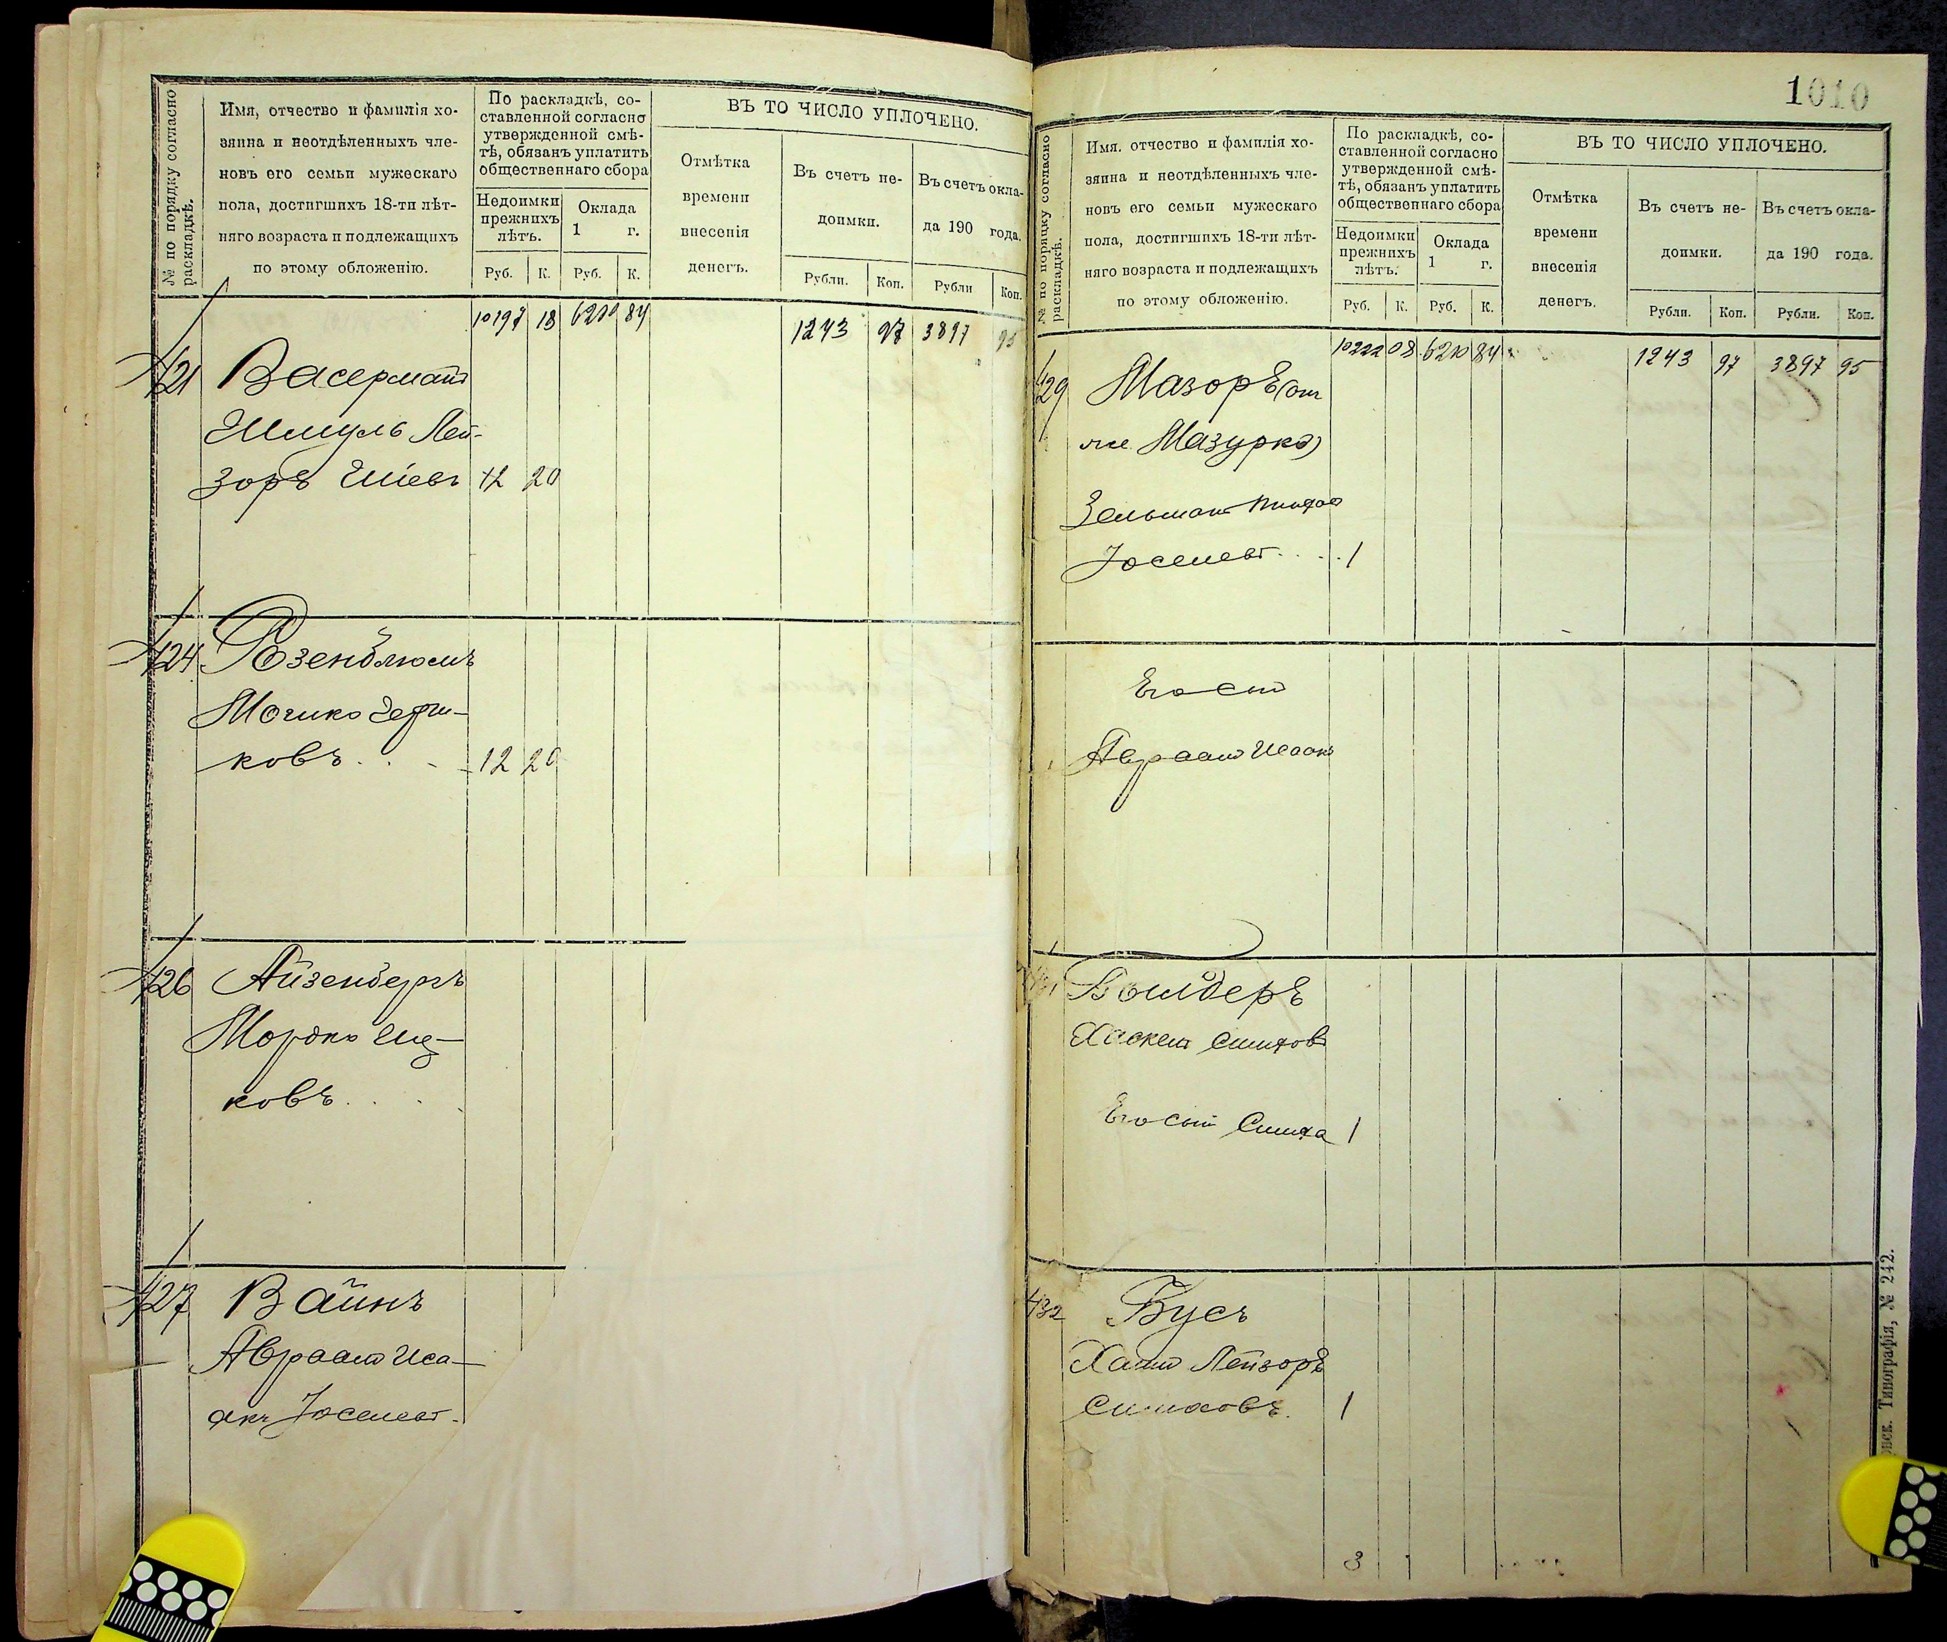 № по порядку согласно раскладкѣ.
Имя, отчество и фамилія хо-
зяина и неотдѣленныхъ чле-
новъ его семьи мужескаго
пола, достигшихъ 18-ти лѣт-
няго возраста и подлежащихъ
по этому обложенію.
По раскладкѣ, со-
ставленной согласно
утвержденной смѣ-
тѣ, обязанъ уплатить
общественнаго сбора
Недоимки
прежнихъ
лѣтъ.
Оклада
1 г.
Руб. К. Руб. К.
ВЪ ТО ЧИСЛО УПЛОЧЕНО.
Отмѣтка
времени
внесенія
денегъ.
Въ счетъ не-
доимки.
Въ счетъ окла-
да 190 года.
Рубли. Коп. Рубли Коп.
10197 18 6210 84 1243 97 3897 95
421 Васерманъ
Шмуль Лей-
зоръ Шіевъ 12 20
424 Розенблюмъ
Мошко Герш-
ковъ . . . 12 20
426 Айзенбергъ
Мордко Иц-
ковъ . . .
427 Вайнъ
Авраам Иса-
акъ Іоселевъ.
1010
№ по порядку согласно раскладкѣ.
Имя. отчество и фамилія хо-
зяина и неотдѣленныхъ чле-
новъ его семьи мужескаго
пола, достигшихъ 18-ти лѣт-
няго возраста и подлежащихъ
по этому обложенію.
По раскладкѣ, со-
ставленной согласно
утвержденной смѣ-
тѣ, обязанъ уплатить
общественнаго сбора
Недоимки
прежнихъ
лѣтъ.
Оклада
1 г.
Руб. К. Руб. К.
ВЪ ТО ЧИСЛО УПЛОЧЕНО.
Отмѣтка
времени
внесенія
денегъ.
Въ счетъ не-
доимки.
Въ счетъ окла-
да 190 года.
Рубли. Коп. Рубли. Коп.
10222 08 6210 84 1243 97 3897 95
429 Мазоръ (он
же Мазурко)
Зельман Пинхас
Іоселевъ . . . . 1
Его сын
Авраам Исаакъ
Бомдеръ
Хаскел Симхов
Его сын Симха 1
432 Бусъ
Хаим Лейзоръ
Симховъ. 1
3
Типографія, № 242.